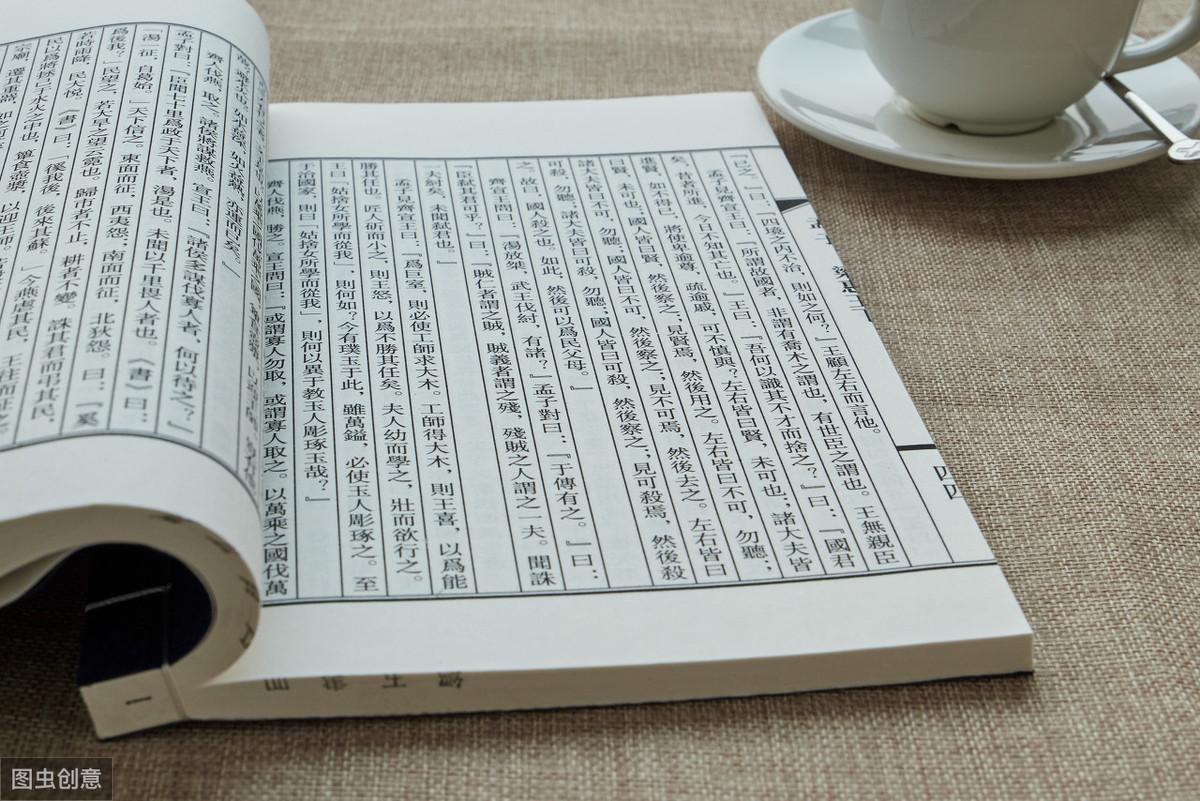 已之。』曰：『四境之內不治，則如之何？』王顧左右而言他。
孟子見齊宣王曰：『所謂故國者，非謂有喬木之謂也，有世臣之謂也。王無親臣
矣，昔者所進，今日不知其亡也。』王曰：『吾何以識其不才而捨之？』曰：『國君
進賢，如不得已，將使卑逾尊，疏逾戚，可不慎與？左右皆曰賢，未可也；諸大夫皆
曰賢，未可也；國人皆曰賢，然後察之；見賢焉，然後用之。左右皆曰不可，勿聽；
諸大夫皆曰不可，勿聽；國人皆曰不可，然後察之；見不可焉，然後去之。左右皆曰
可殺，勿聽；諸大夫皆曰可殺，勿聽；國人皆曰可殺，然後察之；見可殺焉，然後殺
之。故曰，國人殺之也。如此，然後可以爲民父母。』
齊宣王問曰：『湯放桀，武王伐紂，有諸？』孟子對曰：『于傳有之。』曰：
『臣弒其君可乎？』曰：『賊仁者謂之賊，賊義者謂之殘，殘賊之人謂之一夫。聞誅
一夫紂矣，未聞弒君也。』
孟子見齊宣王曰：『爲巨室，則必使工師求大木。工師得大木，則王喜，以爲能
勝其任也。匠人斫而小之，則王怒，以爲不勝其任矣。夫人幼而學之，壯而欲行之。
王曰『姑捨女所學而從我』，則何如？今有璞玉于此，雖萬鎰，必使玉人彫琢之。至
于治國家，則曰『姑捨女所學而從我』，則何以異于教玉人彫琢玉哉？』
齊人伐燕，勝之。宣王問曰：『或謂寡人勿取，或謂寡人取之。以萬乘之國伐萬
齊人伐燕，取之。諸侯將謀救燕。宣王曰：『諸侯多謀伐寡人者，何以待之？』
孟子對曰：『臣聞七十里爲政于天下者，湯是也。未聞以千里畏人者也。《書》曰：
『湯一征，自葛始。』天下信之。東面而征，西夷怨；南面而征，北狄怨。曰：『奚
爲後我？』民望之，若大旱之望雲霓也。歸市者不止，耕者不變。誅其君而弔其民，
若時雨降，民大悅。《書》曰：『徯我後，後來其蘇。』今燕虐其民，王往而征之
民以爲將拯己于水火之中也，簞食壺漿，以迎王師。
宗廟，遷其重器，如之何
四四
一
图虫创意